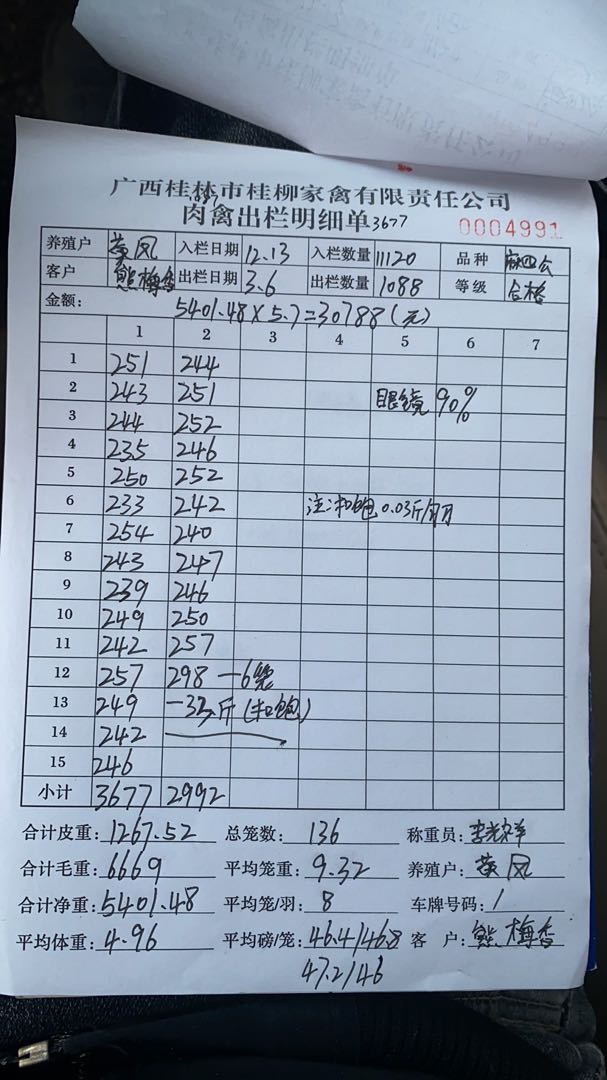 广西桂林市桂柳家禽有限责任公司
肉禽出栏明细单 3677
0004991
养殖户 黄凤 入栏日期 12.13 入栏数量 11120 品种 麻四公
客户 熊梅香 出栏日期 3.6 出栏数量 1088 等级 合格
金额: 5401.48×5.7=30788(元)
1 2 3 4 5 6 7
1 251 244
2 243 251 眼镜 90%
3 244 252
4 235 246
5 250 252
6 233 242 注:扣饱0.03斤/羽
7 254 240
8 243 247
9 239 246
10 249 250
11 242 257
12 257 298 —6笼
13 249 —33斤(扣饱)
14 242
15 246
小计 3677 2992
合计皮重: 1267.52 总笼数: 136 称重员: 李光祥
合计毛重: 6669 平均笼重: 9.32 养殖户: 黄凤
合计净重: 5401.48 平均笼/羽: 8 车牌号码: /
平均体重: 4.96 平均磅/笼: 46.4/46.8 客 户: 熊梅香
47.2/46